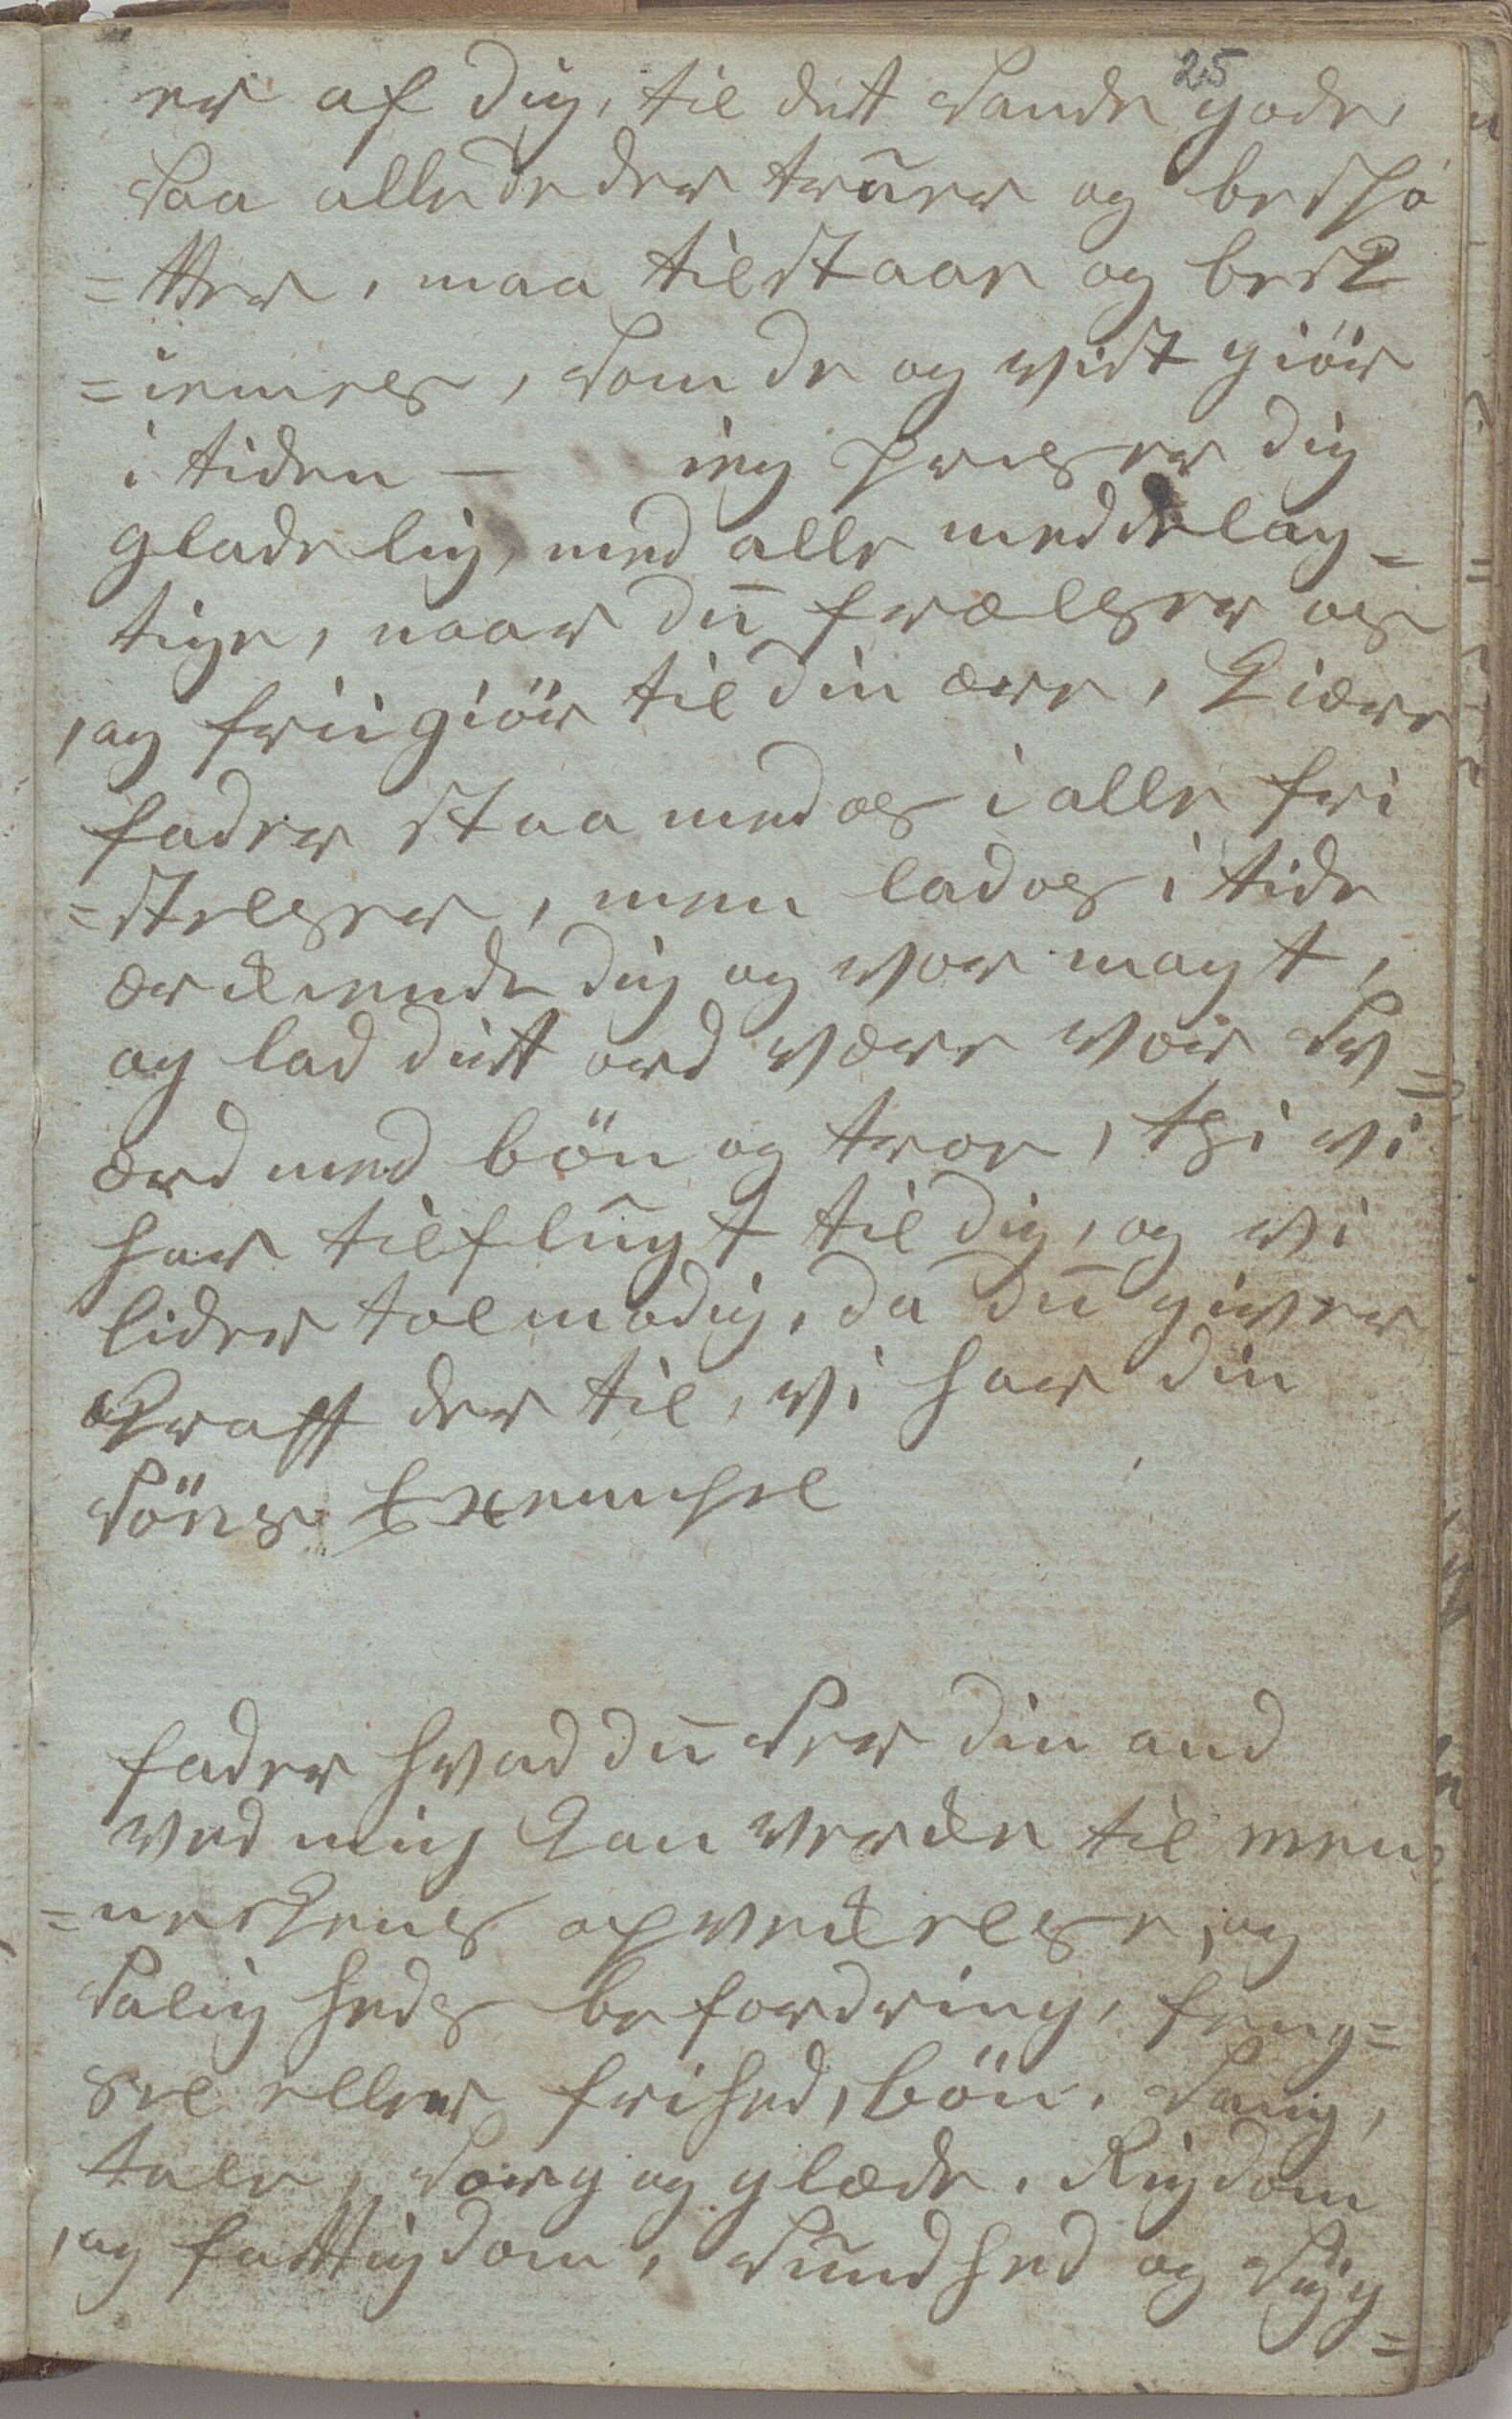 25
er af dig, til dett Sande gode,
Saa alle de der truer og bespo
=tter, maa tilstaar og besk
=iemes, Som de og vist giör
i tiden — ieg priser dig
gladelig, med alle meddelag=
tige, naar du frælser os
, og friigiör til din ære, Kiære
fader staa med os i alle fri
=stelser, men lad os i tide
ærkiende dig og vor magt,
og lad ditt ord være vor Sv=
ærd med bön og troe, thi vi
har tilflugt til dig, og vi
lider tolmodig, da du giver
Kraft der til, vi har din
Söns Exempel
fader hvad du Ser din aand
ved mig kan verke til men
=neskens opvekelse, og
Salig heds befordring, feng=
sel eller frihed, bön, Sang,
tale, Sorg og glæde, Rigdom
, og fattigdom, Sundhed og Syg=